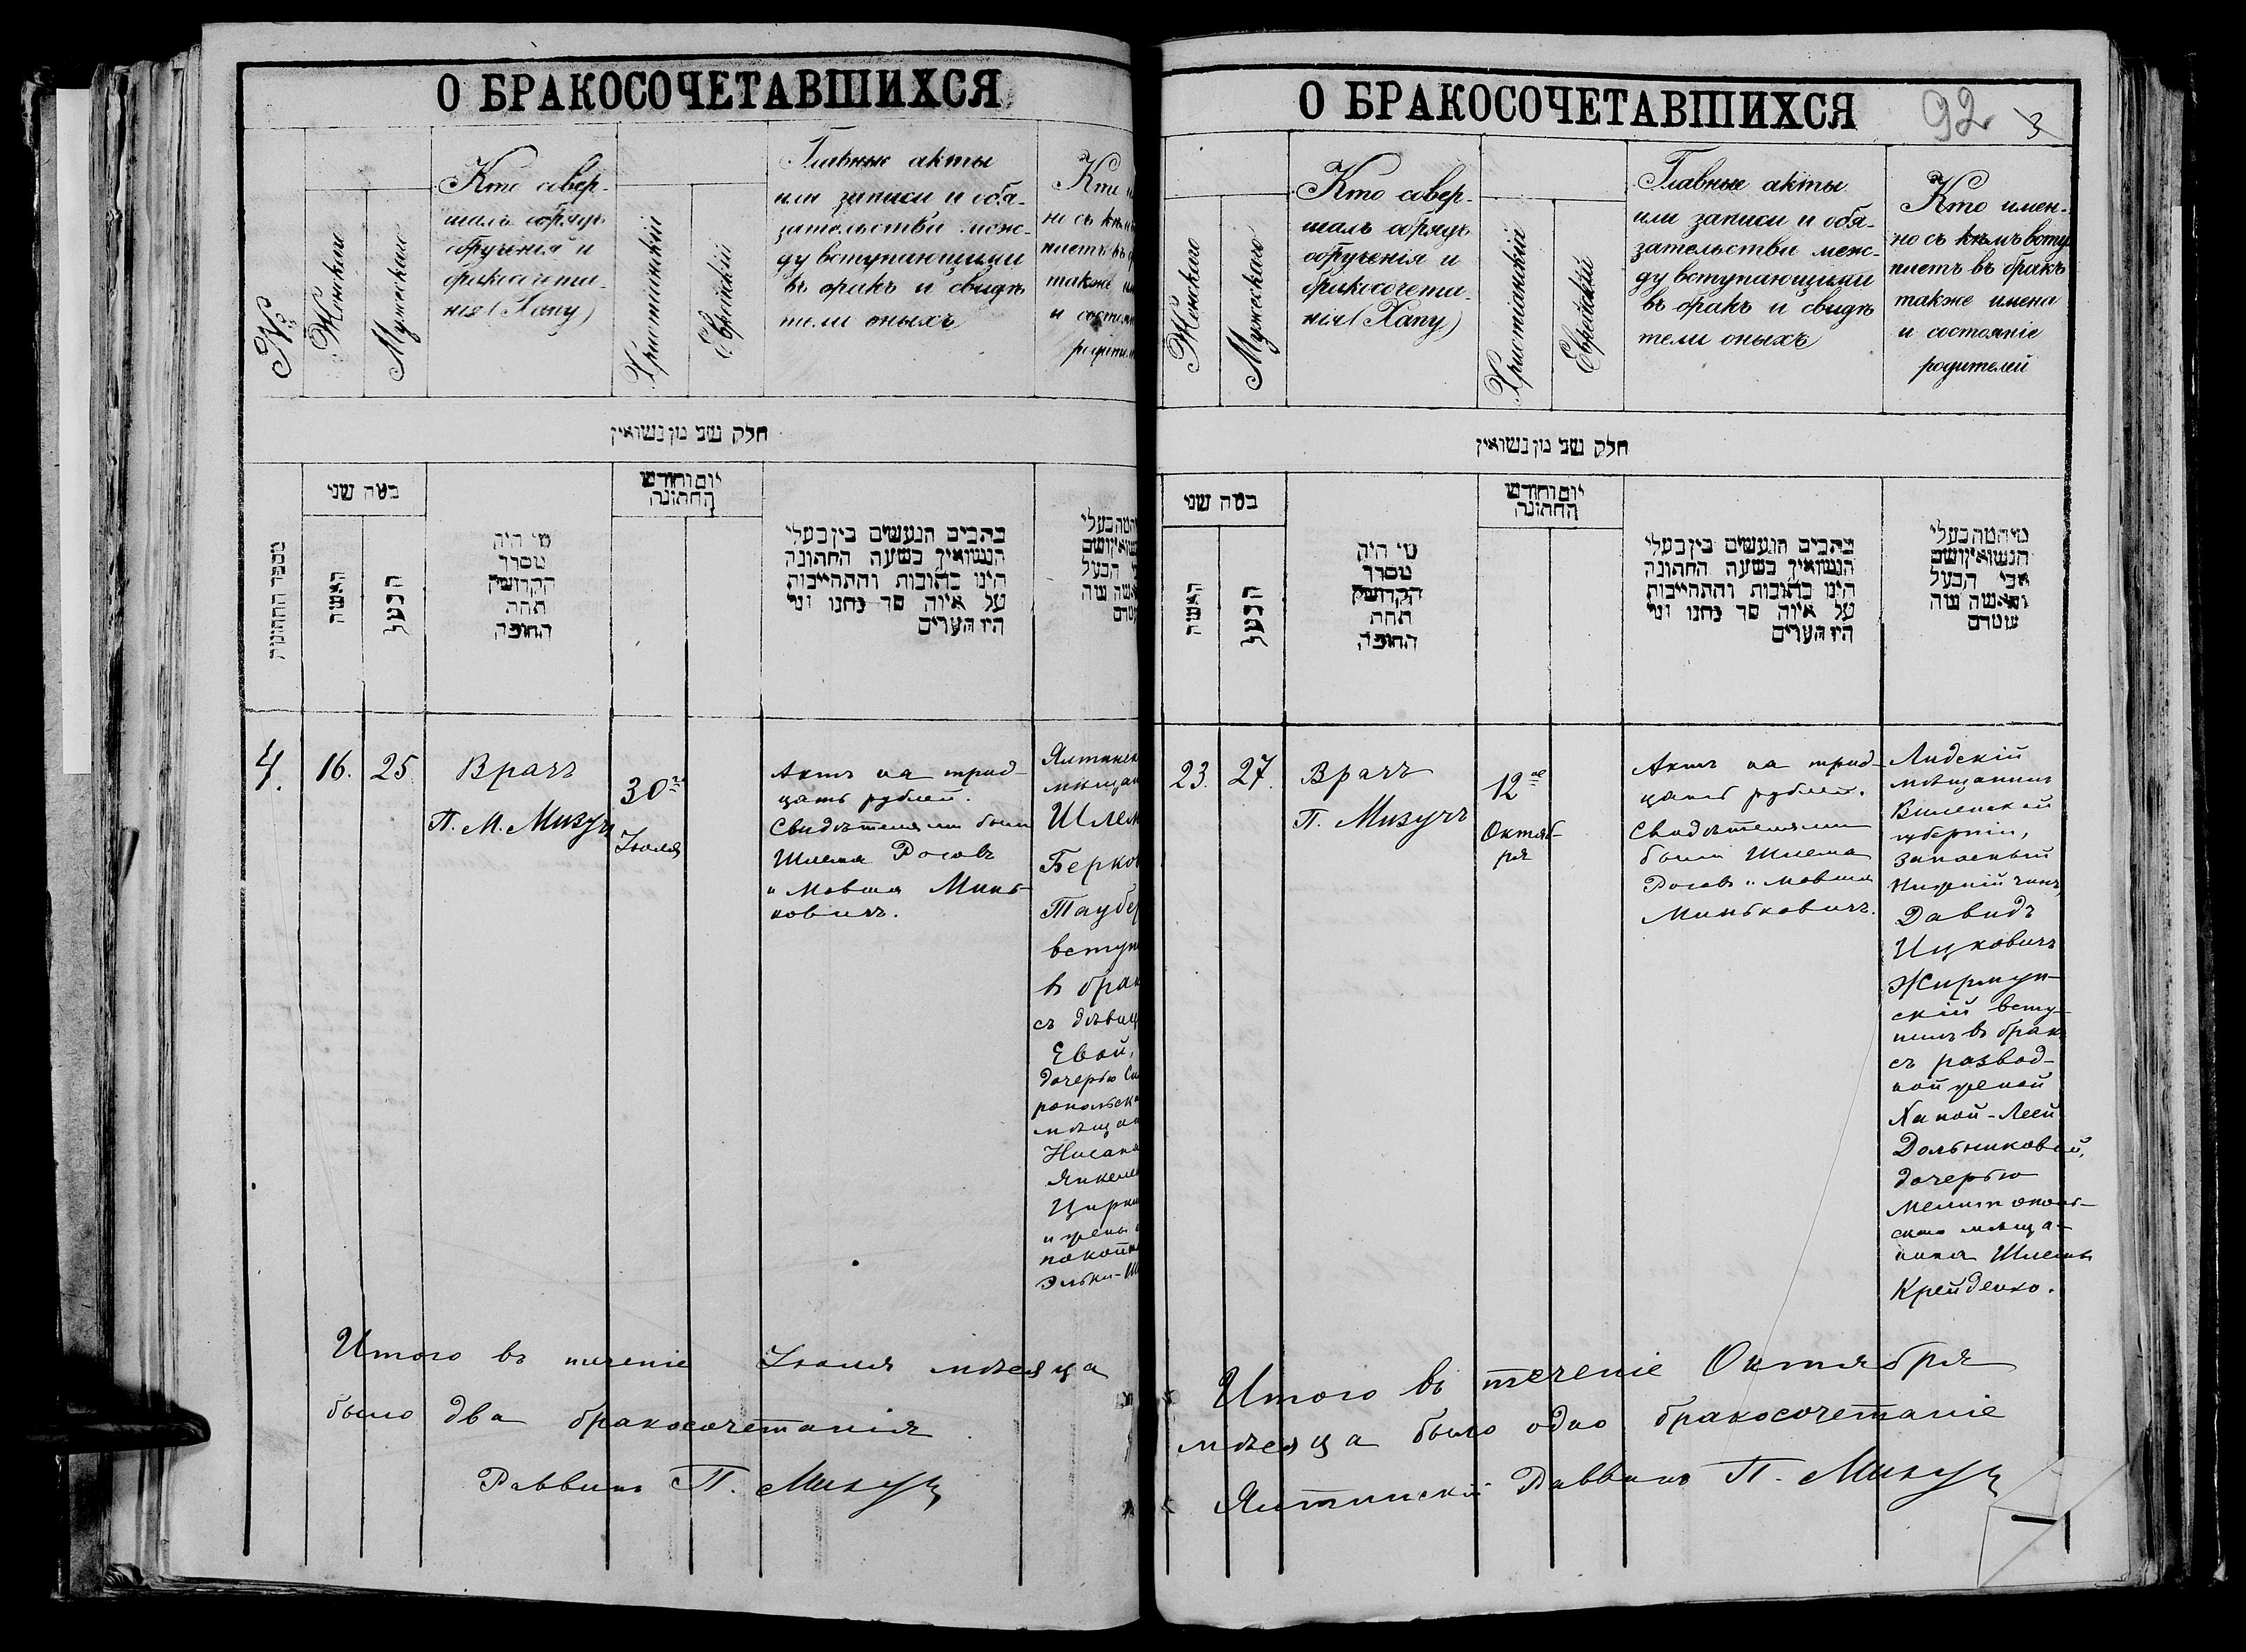 О БРАКОСОЧЕТАВШИХСЯ
№
Женскаго
Мужескаго
Кто совер-
шалъ обрядъ
обрученія и
бракосочета-
нія (Хапу)
Христіанскій
Еврейскій
Главные акты
или записи и обя-
зательства меж-
ду вступающими
въ бракъ и свидѣ
тели оныхъ
Кто
но съ
также
и
חלק שני מן נשואין
מספר החתונות
כמה שני
האשה
הבעל
מי היה
מסדר
הקדושין
תחת
החופה
יום וחודש
החתונה
כתבים הנעשים בין בעלי
הנשואין בשעה החתונה
היינו כתובות והתחייבות
על איזה סך
היו העדים
4.
16.
25
Врачъ
П. М. Мизучъ
30го
Іюля
Актъ на трид-
цать рублей.
Свидѣтелями были
Шлема Росовъ
и Мовша Минь-
ковичъ.
Ялтинск
мѣщан
Шлем
Берко
Таубе
вступ
въ брак
съ дѣвиц
Евой,
дочерью
мѣщан
Нисана
Янкеле
Цирк
и жены
покойн
Эльки-Ш
Итого въ теченіе Іюля мѣсяца
было два бракосочетанія
Раввинъ П. Мизучъ
О БРАКОСОЧЕТАВШИХСЯ
92
3
Женскаго
Мужескаго
Кто совер-
шалъ обрядъ
обрученія и
бракосочета-
нія (Хапу)
Христіанскій
Еврейскій
Главные акты
или записи и обя-
зательства меж-
ду вступающими
въ бракъ и свидѣ
тели оныхъ
Кто имен-
но съ кѣмъ всту
паетъ въ бракъ
также имена
и состояніе
родителей
חלק שני מן נשואין
כמה שני
האשה
הבעל
מי היה
מסדר
הקדושין
תחת
החופה
יום וחודש
החתונה
כתבים הנעשים בין בעלי
הנשואין בשעה החתונה
היינו כתובות והתחייבות
על איזה סך
היו העדים
בעלי
הנשואין ושם
אבי הבעל
והאשה
23.
27.
Врачъ
П. Мизучъ
12ое
Октяб-
ря
Актъ на трид-
цать рублей.
Свидѣтелями
были Шлема
Росовъ и Мовша
Миньковичъ.
Лидскій
мѣщанинъ
Виленской
губерніи,
запасный
нижній чинъ
Давидъ
Ицковичъ
Жирмун-
скій всту-
пилъ въ бракъ
съ развод-
ной женой
Ханой-Леей
Дольниковой,
дочерью
Мелитополь-
скаго мѣща-
нина Шлемы
Крейденко.
Итого въ теченіе Октября
мѣсяца было одно бракосочетаніе
Ялтинскій Раввинъ П. Мизучъ